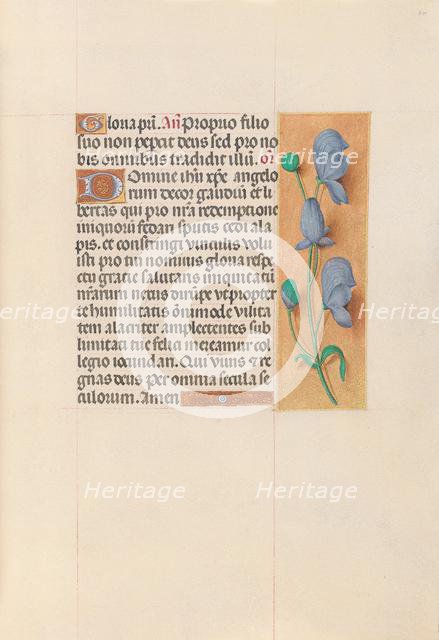 Gloria pri. An Proprio filio
suo non pepcit deus sed pro no
bis omnibus tradidit illū. or
Domine ihu xpe angelo
rum decor gaudiū et li
bertas qui pro nra redemptione
iniquorū fedari sputis cedi ala
pis. et constringi vinculis volu
isti pro tui nominis gloria respec
tu gratie salutaris iniquitatū
nrarum nexus dirūpe vt propter
te humilitatis omimode vilita
tem alacriter amplectentes sub
limitati tue felici mereamur col
legio iocundari. Qui viuis et re
gnas deus per omnia secula se
culorum. Amen
Heritage Heritage Heritage
Heritage Heritage Heritage
Heritage Heritage